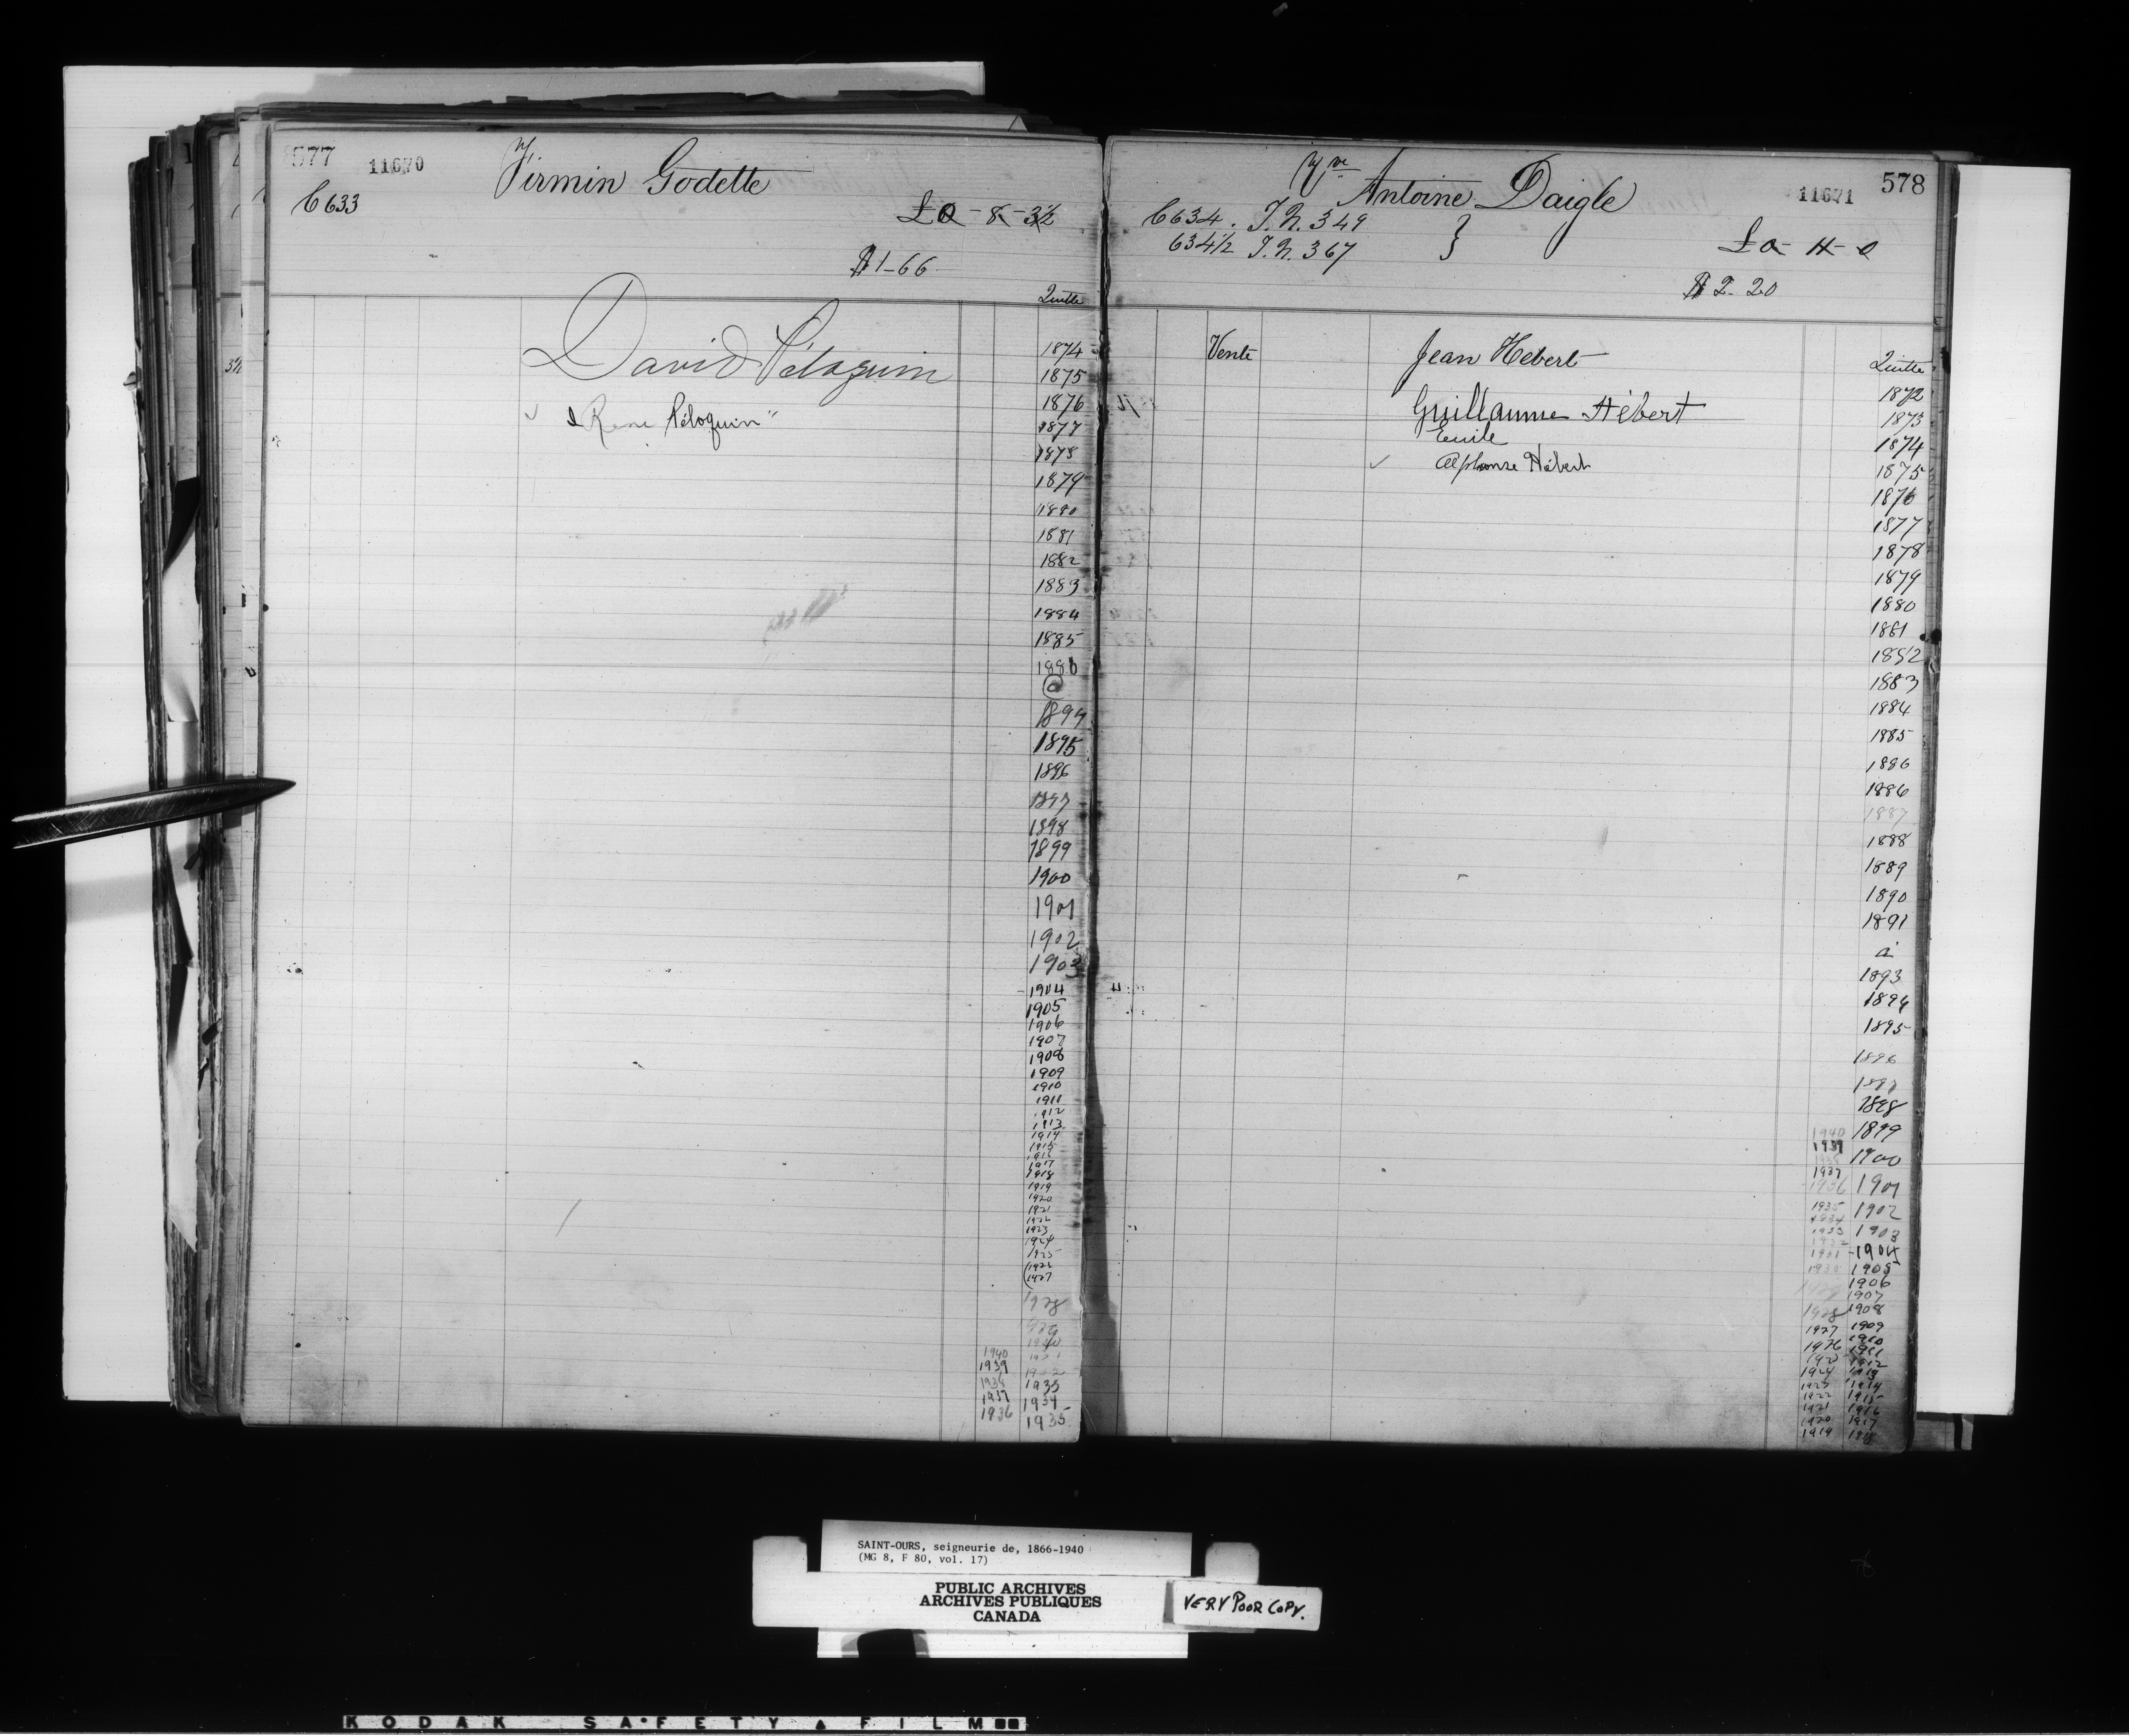 577 11670 Firmin Godette
C 633
£0-8-3½
$1-66
Quitte
David Péloquin
René Péloquin
1874
1875
1876
1877
1878
1879
1880
1881
1882
1883
1884
1885
1886
@
1894
1895
1896
1897
1898
1899
1900
1901
1902
1903
1904
1905
1906
1907
1908
1909
1910
1911
1912
1913
1914
1915
1916
1917
1918
1919
1920
1921
1922
1923
1924
1925
1926
1927
1928
1929
1940
1939 1932
1938 1933
1937 1934
1936 1935
Vve Antoine Daigle 11671 578
C 634. T.N. 349
634½ T.N. 367
£0-11-0
$2-20
Vente Jean Hebert Quitte
Guillaume Hébert
Emile
Alphonse Hébert
1872
1873
1874
1875
1876
1877
1878
1879
1880
1881
1882
1883
1884
1885
1886
1886
1887
1888
1889
1890
1891
à
1893
1894
1895
1896
1897
1898
1940 1899
1939
1938 1900
1937
1936 1901
1935 1902
1934
1933 1903
1932
1931 1904
1930 1905
1906
1907
1928 1908
1927 1909
1926 1910
1911
1912
1924 1913
1923 1914
1922 1915
1921 1916
1920 1917
1919 1918
SAINT-OURS, seigneurie de, 1866-1940
(MG 8, F 80, vol. 17)
PUBLIC ARCHIVES
ARCHIVES PUBLIQUES
CANADA
VERY POOR COPY.
KODAK SAFETY FILM